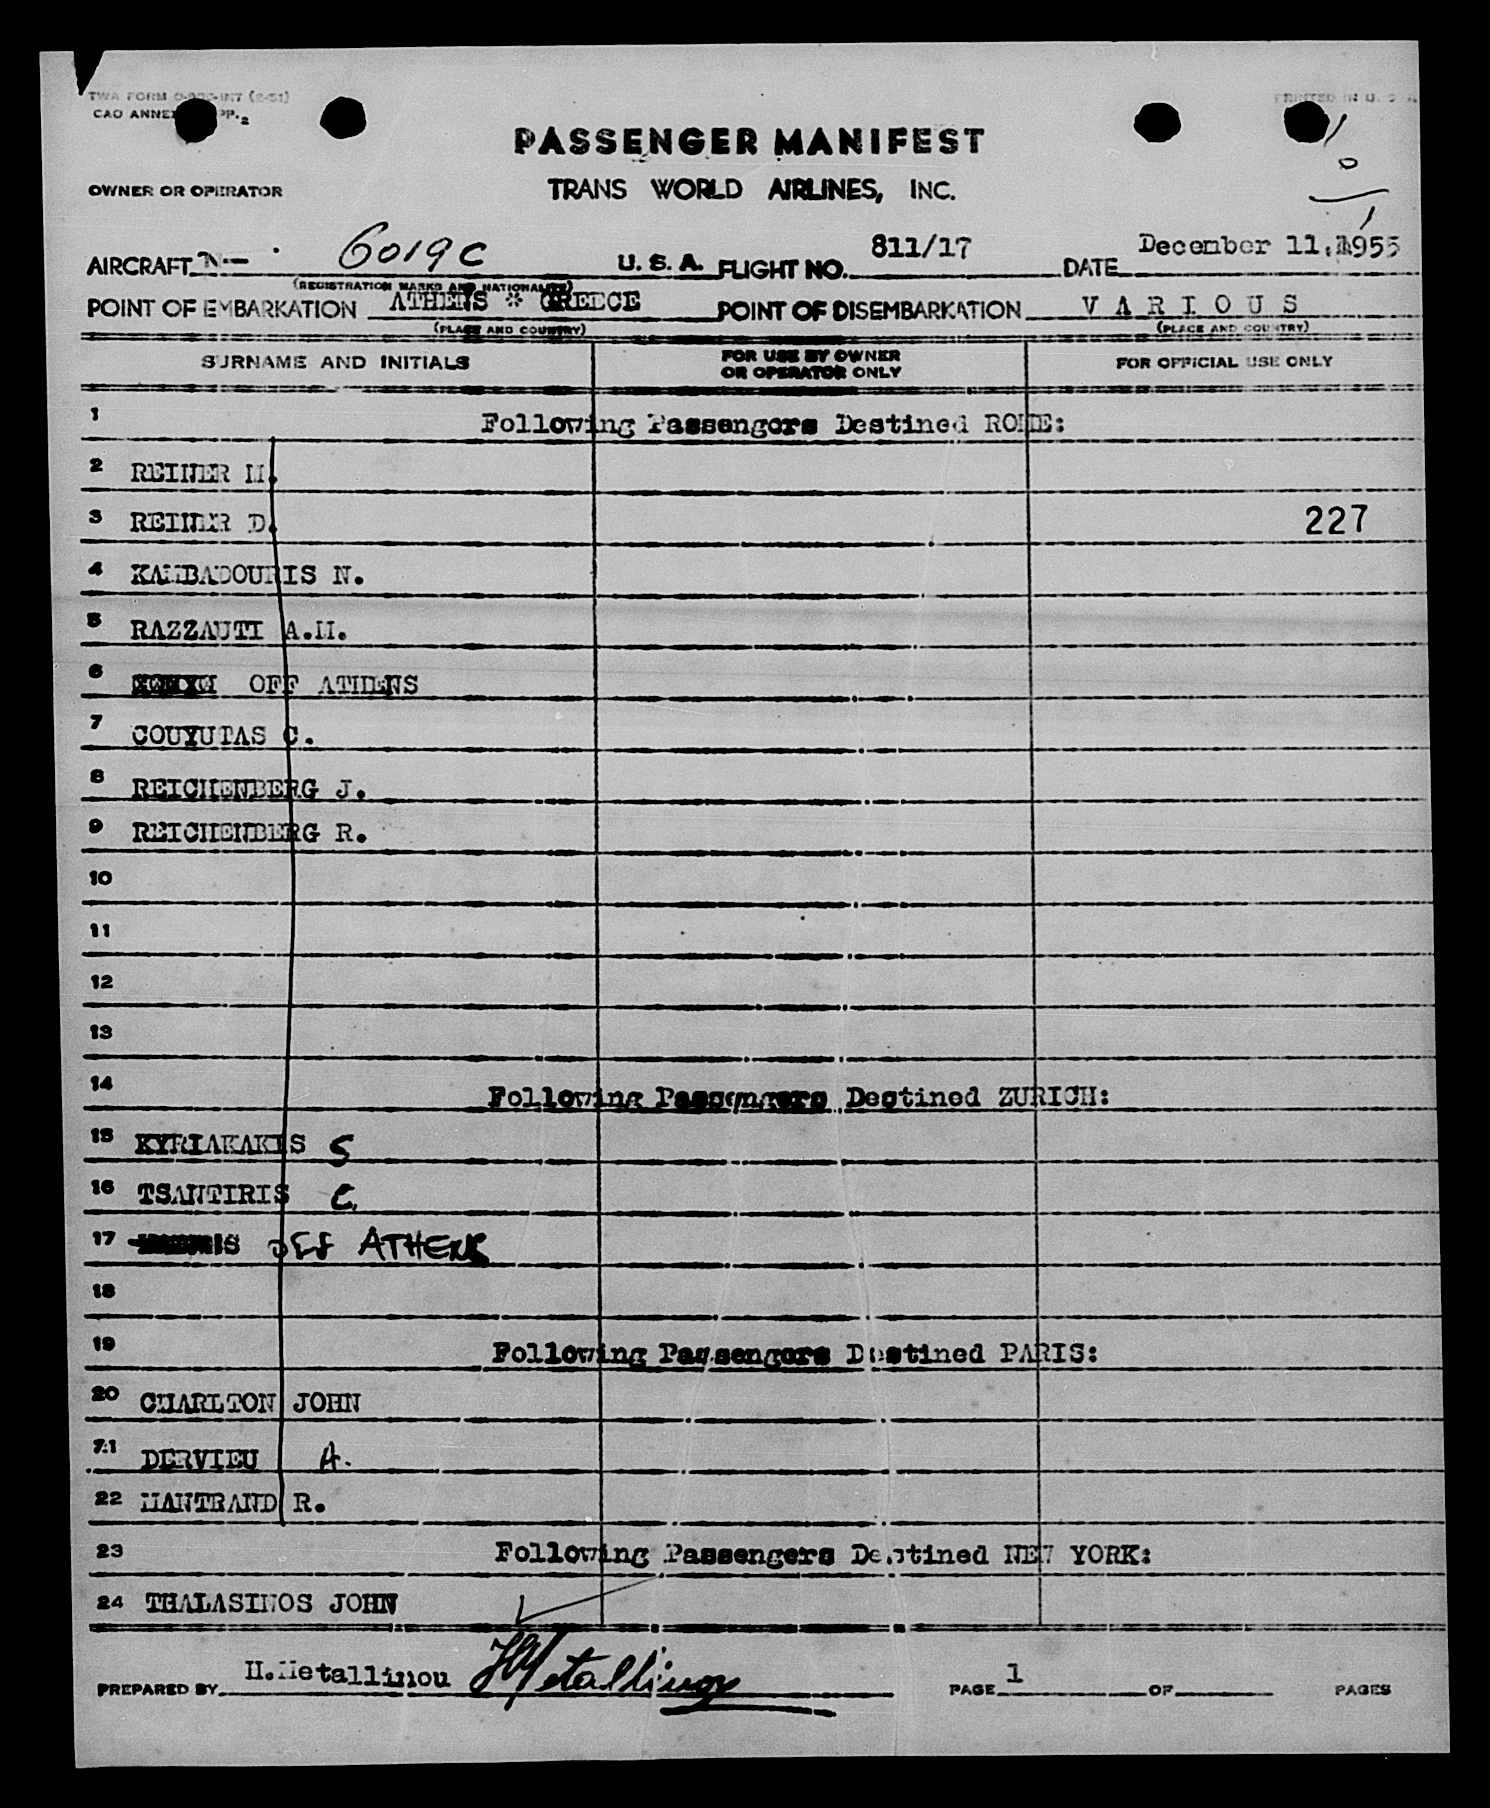 TWA FORM
PRINTED IN U. S. A.
CAO ANNEX PP.2
PASSENGER MANIFEST
1
0
OWNER OR OPERATOR
TRANS WORLD AIRLINES, INC.
1
AIRCRAFT N— 6019C U. S. A. FLIGHT NO. 811/17 DATE December 11, 1955
(REGISTRATION MARKS AND NATIONALITY)
POINT OF EMBARKATION ATHENS * GREECE POINT OF DISEMBARKATION V A R I O U S
(PLACE AND COUNTRY) (PLACE AND COUNTRY)
SURNAME AND INITIALS FOR USE BY OWNER OR OPERATOR ONLY FOR OFFICIAL USE ONLY
1 Following Passengers Destined ROME:
2 REINER M.
3 REINER D. 227
4 KAMBADOURIS N.
5 RAZZAUTI A.M.
6 OFF ATHENS
7 COUYUTAS C.
8 REICHENBERG J.
9 REICHENBERG R.
10
11
12
13
14 Following Passengers Destined ZURICH:
15 KYRIAKAKIS S
16 TSANTIRIS C.
17 OFF ATHENS
18
19 Following Passengers Destined PARIS:
20 CHARLTON JOHN
21 DERVIEU A.
22 MANTRAND R.
23 Following Passengers Destined NEW YORK:
24 THALASINOS JOHN
PREPARED BY M.Metallinou HMetallinou PAGE 1 OF PAGES